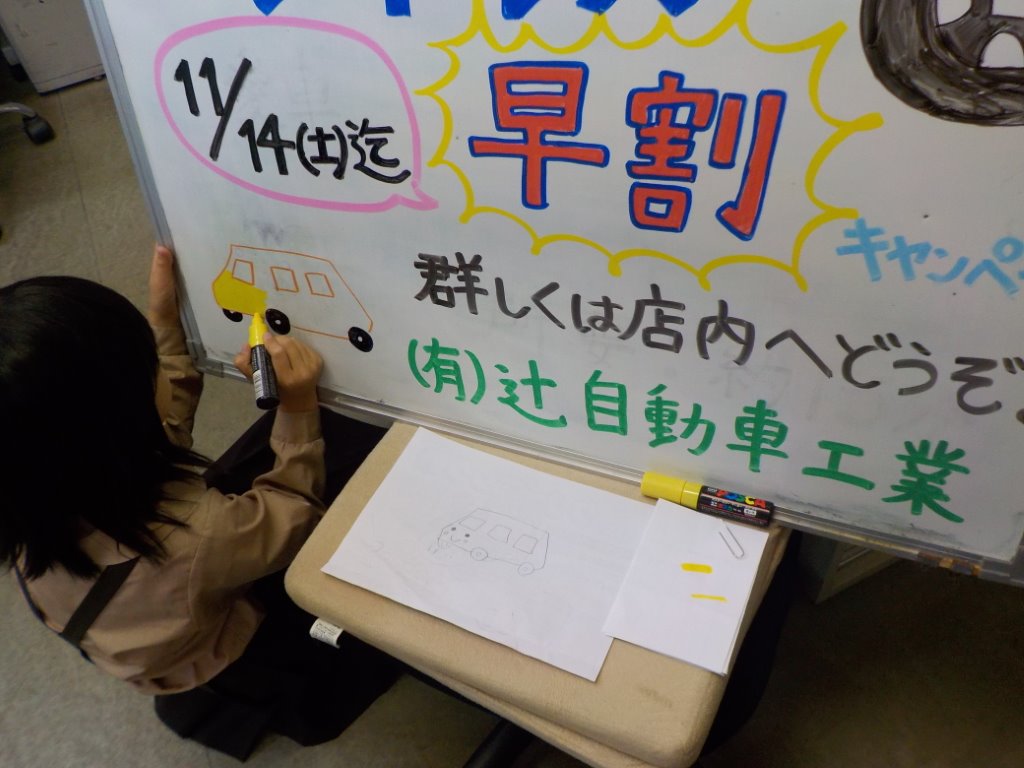 11/14(土)迄
早割
キャンペ
群しくは店内へどうぞ。
(有)辻自動車工業
POSCA